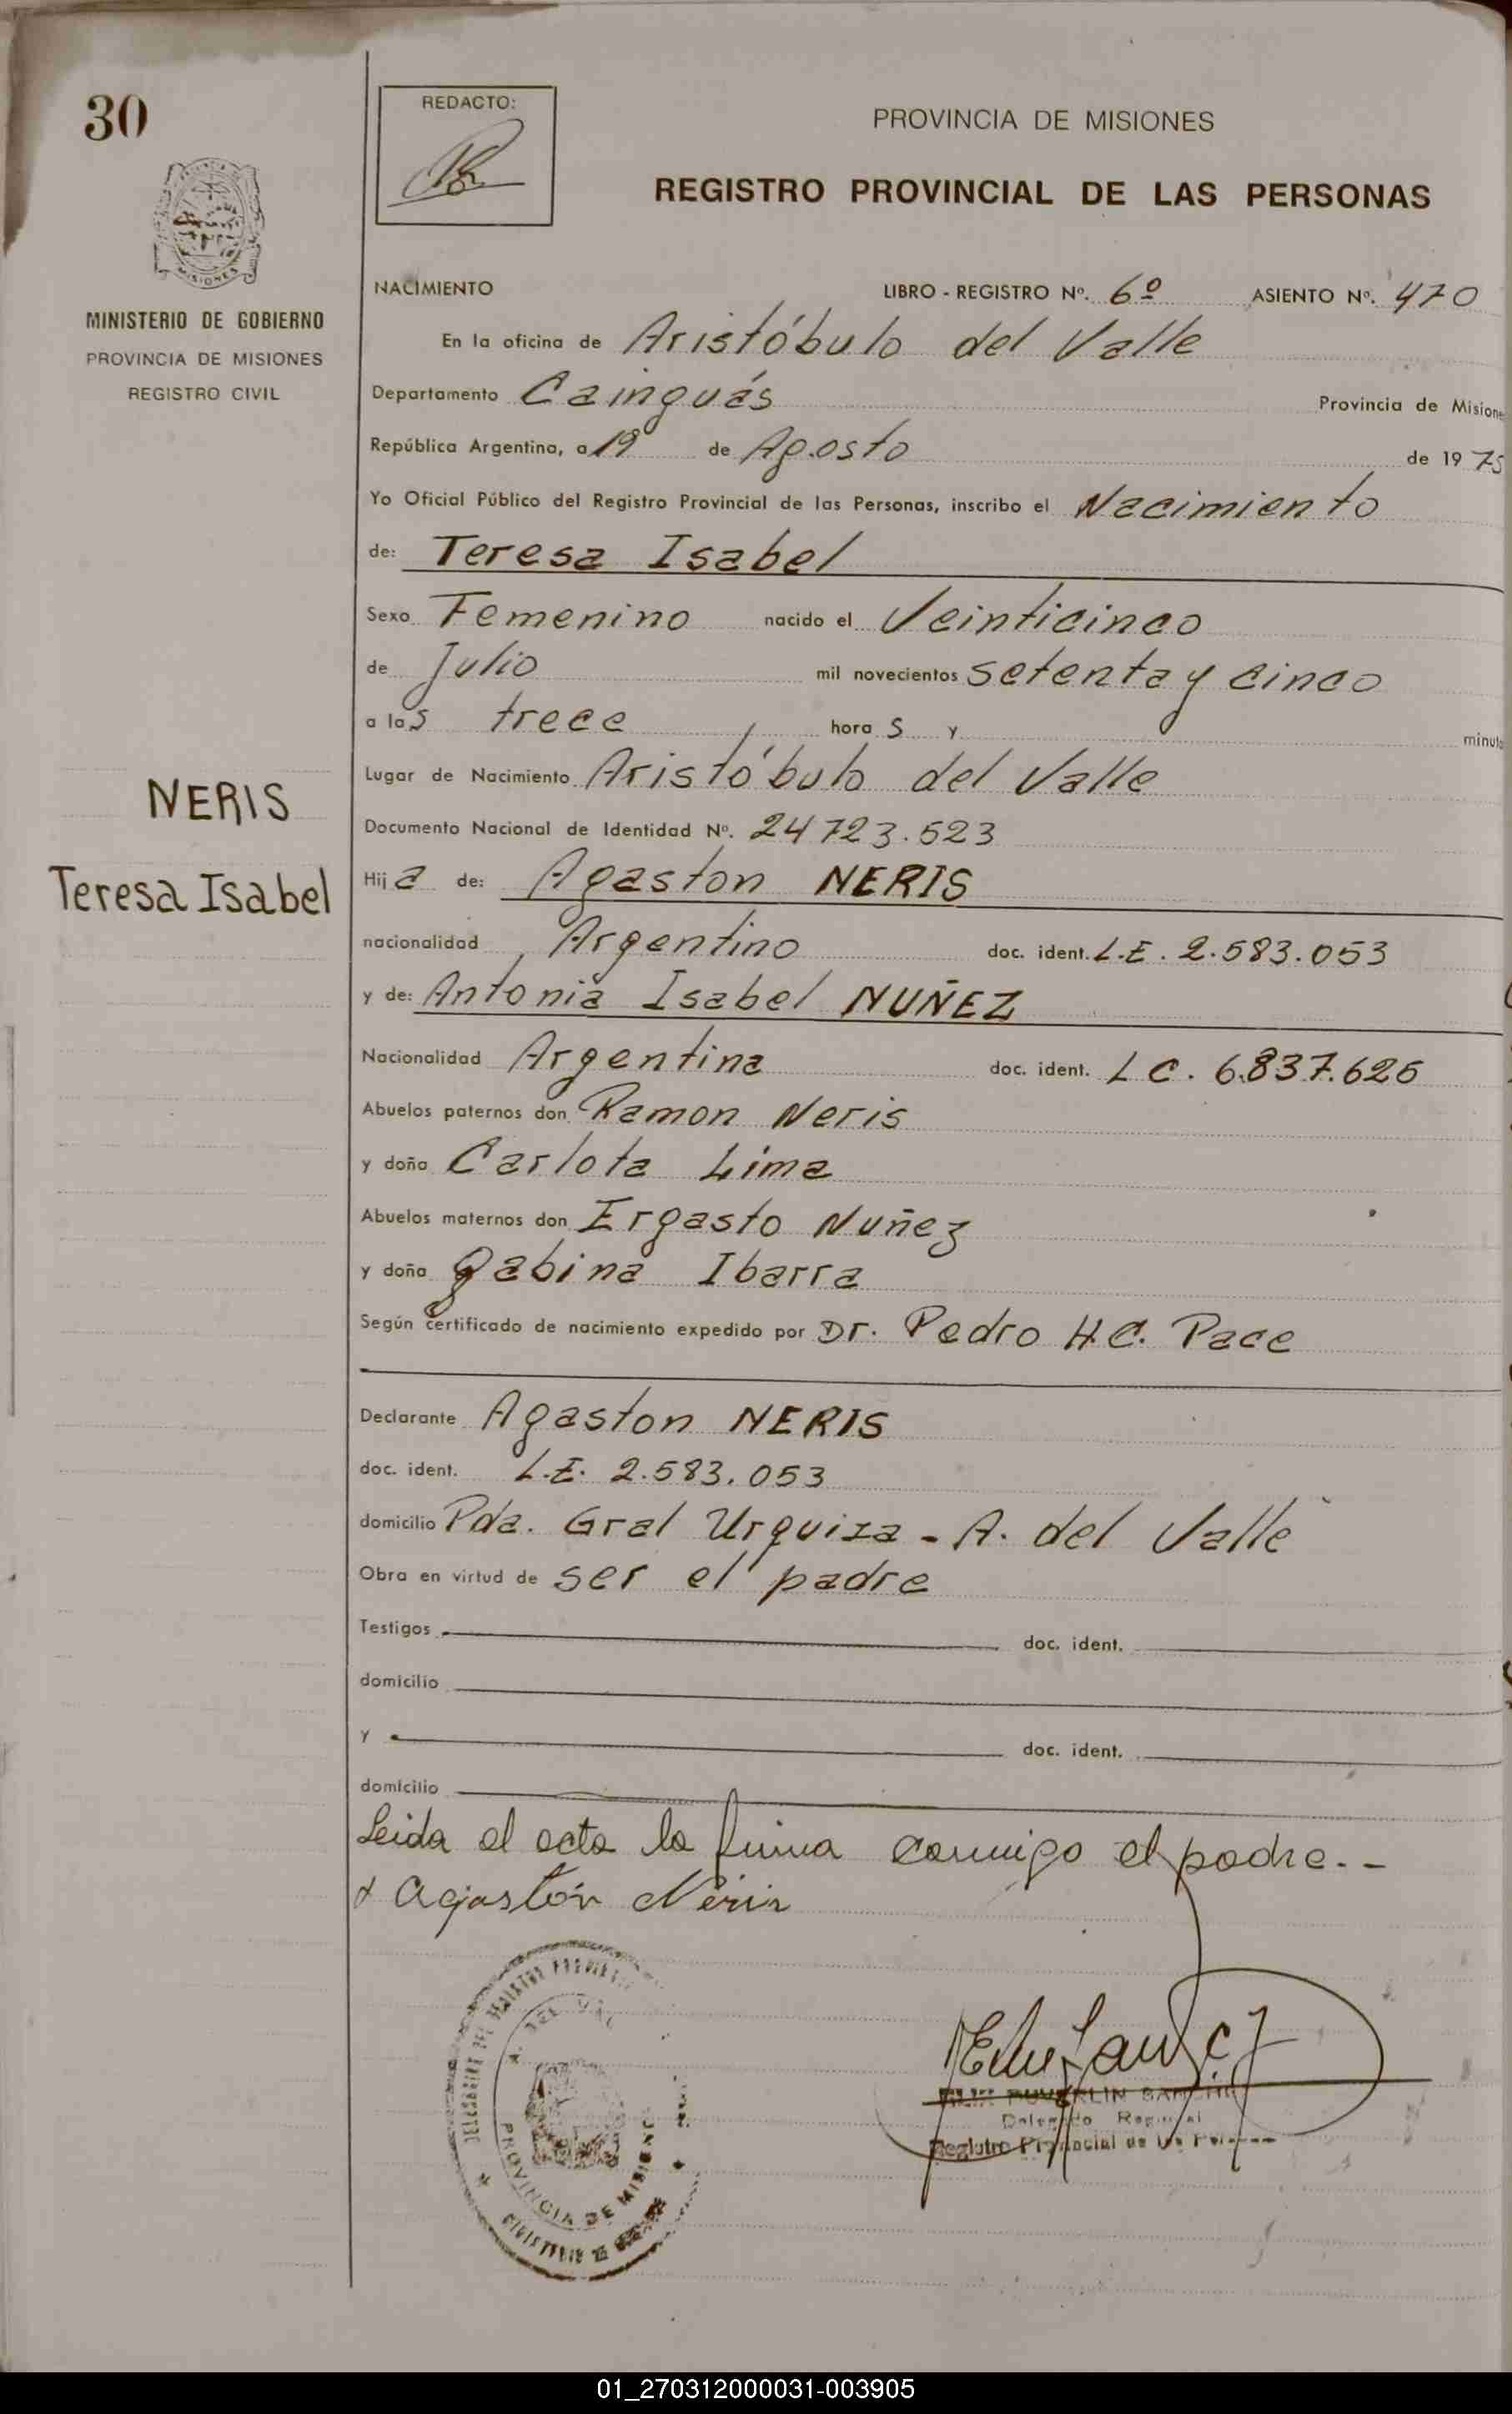 30
REDACTO:
PROVINCIA DE MISIONES
REGISTRO PROVINCIAL DE LAS PERSONAS
MISIONES
MINISTERIO DE GOBIERNO
PROVINCIA DE MISIONES
REGISTRO CIVIL
NACIMIENTO LIBRO - REGISTRO Nº. 6º ASIENTO Nº. 470
En la oficina de Aristóbulo del Valle
Departamento Cainguás Provincia de Misione
República Argentina, a 19 de Agosto de 1975
Yo Oficial Público del Registro Provincial de las Personas, inscribo el Nacimiento
de: Teresa Isabel
Sexo Femenino nacido el Veinticinco
de Julio mil novecientos setenta y cinco
a las trece horas y minuto
Lugar de Nacimiento Aristóbulo del Valle
NERIS
Teresa Isabel
Documento Nacional de Identidad Nº. 24723.523
Hija de: Agaston NERIS
nacionalidad Argentino doc. ident. L.E. 2.583.053
y de: Antonia Isabel NUÑEZ
Nacionalidad Argentina doc. ident. L C. 6.837.626
Abuelos paternos don Ramon Neris
y doña Carlota Lima
Abuelos maternos don Ergasto Nuñez
y doña Gabina Ibarra
Según certificado de nacimiento expedido por Dr. Pedro H.C. Pace
Declarante Agaston NERIS
doc. ident. L.E. 2.583.053
domicilio Pda. Gral Urquiza - A. del Valle
Obra en virtud de ser el padre
Testigos doc. ident.
domicilio
y doc. ident.
domicilio
Leida el acta la firma conmigo el padre.-
Agastón Neris
PROVINCIA DE MISIONES
Delegado Regional
Registro Provincial de las
01_270312000031-003905